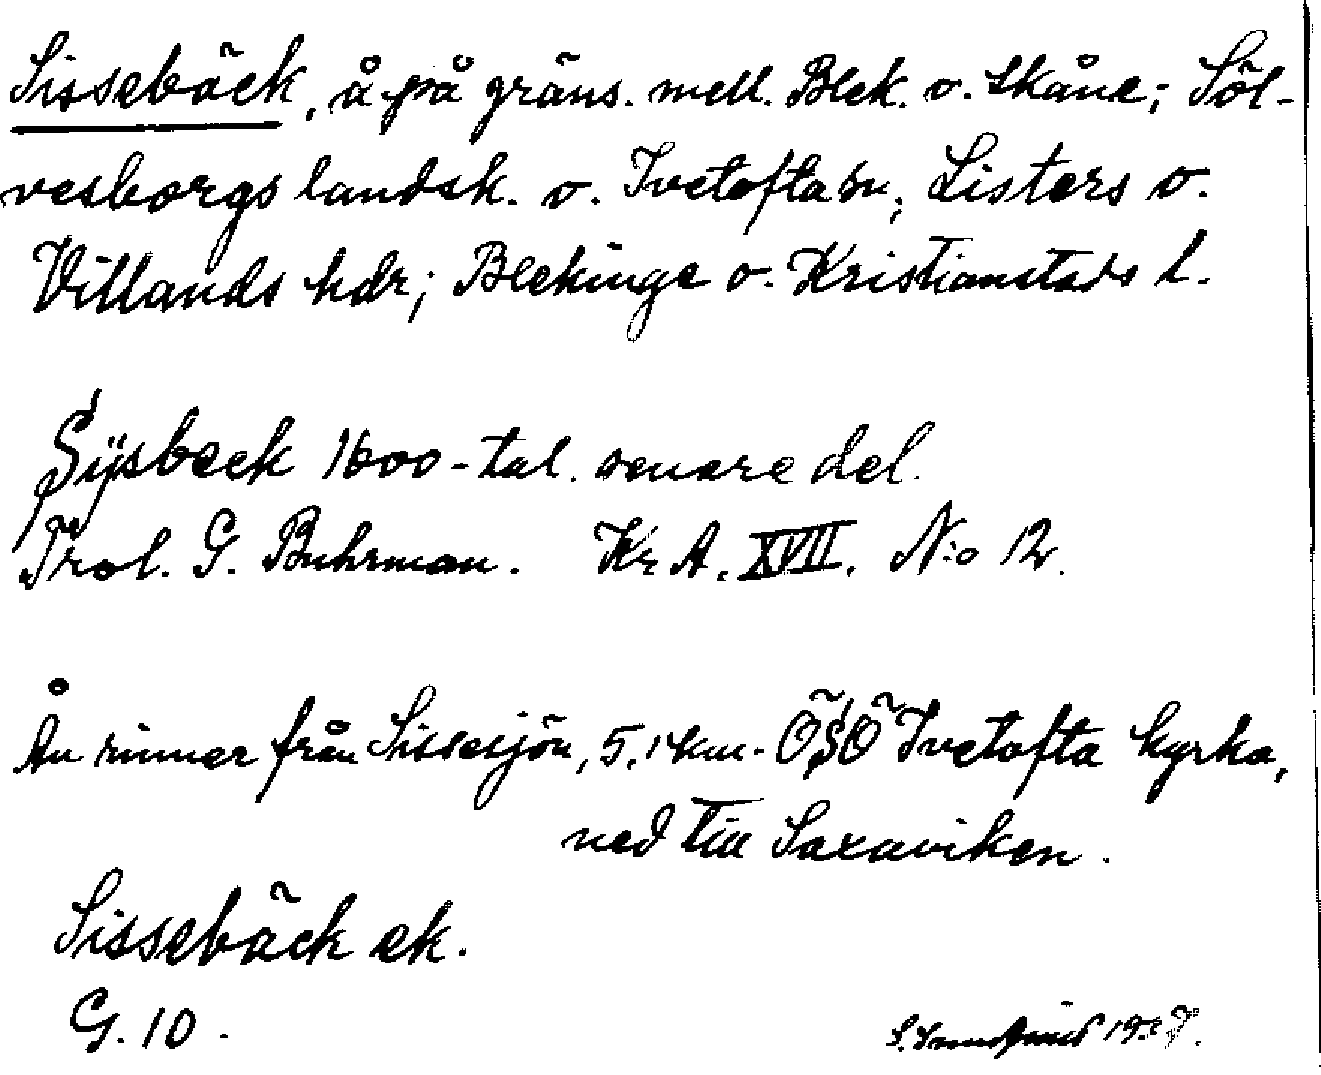 Sissebäck, å på gräns. mell. Blek. o. Skåne; Söl-
vesborgs landsk. o. Ivetofta sn, Listers o.
Villands hdr; Blekinge o. Kristianstads l.
Sÿsbeck 1600-tal. senare del.
Trol. G. Buhrman. Kr. A. XVII. N:o 12.
Ån rinner från Sissesjön, 5,1 km. ÖSÖ Ivetofta kyrka,
ned till Saxaviken.
Sissebäck ek.
G. 10.
S. 1937.